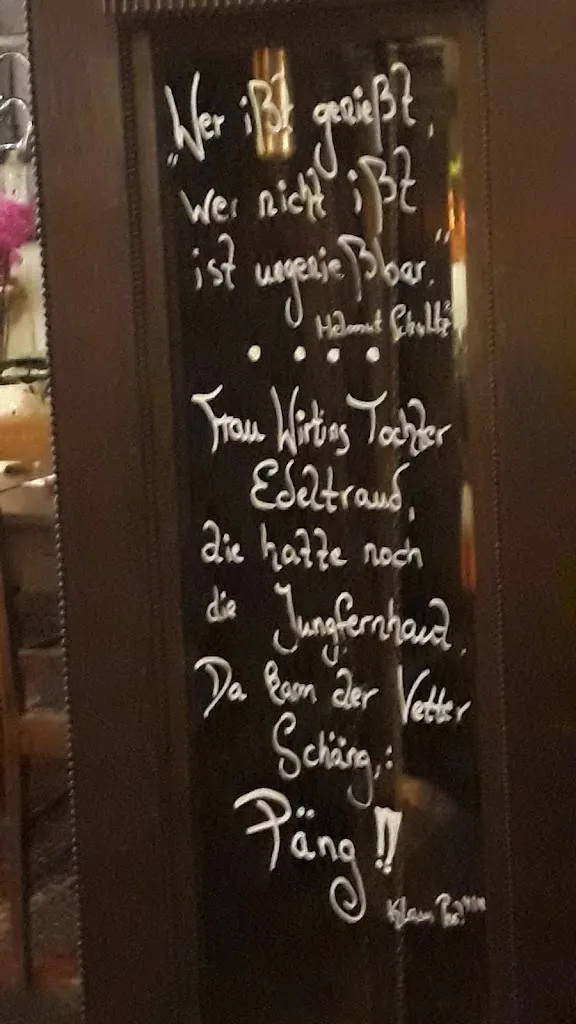 „Wer ißt genießt,
wer nicht ißt
ist ungenießbar.“
Helmut
Frau Wirtins Tochter
Edeltraud,
die hatte noch
die Jungfernhaut.
Da kam der Vetter
Schäng,:
Päng!!
Klaus